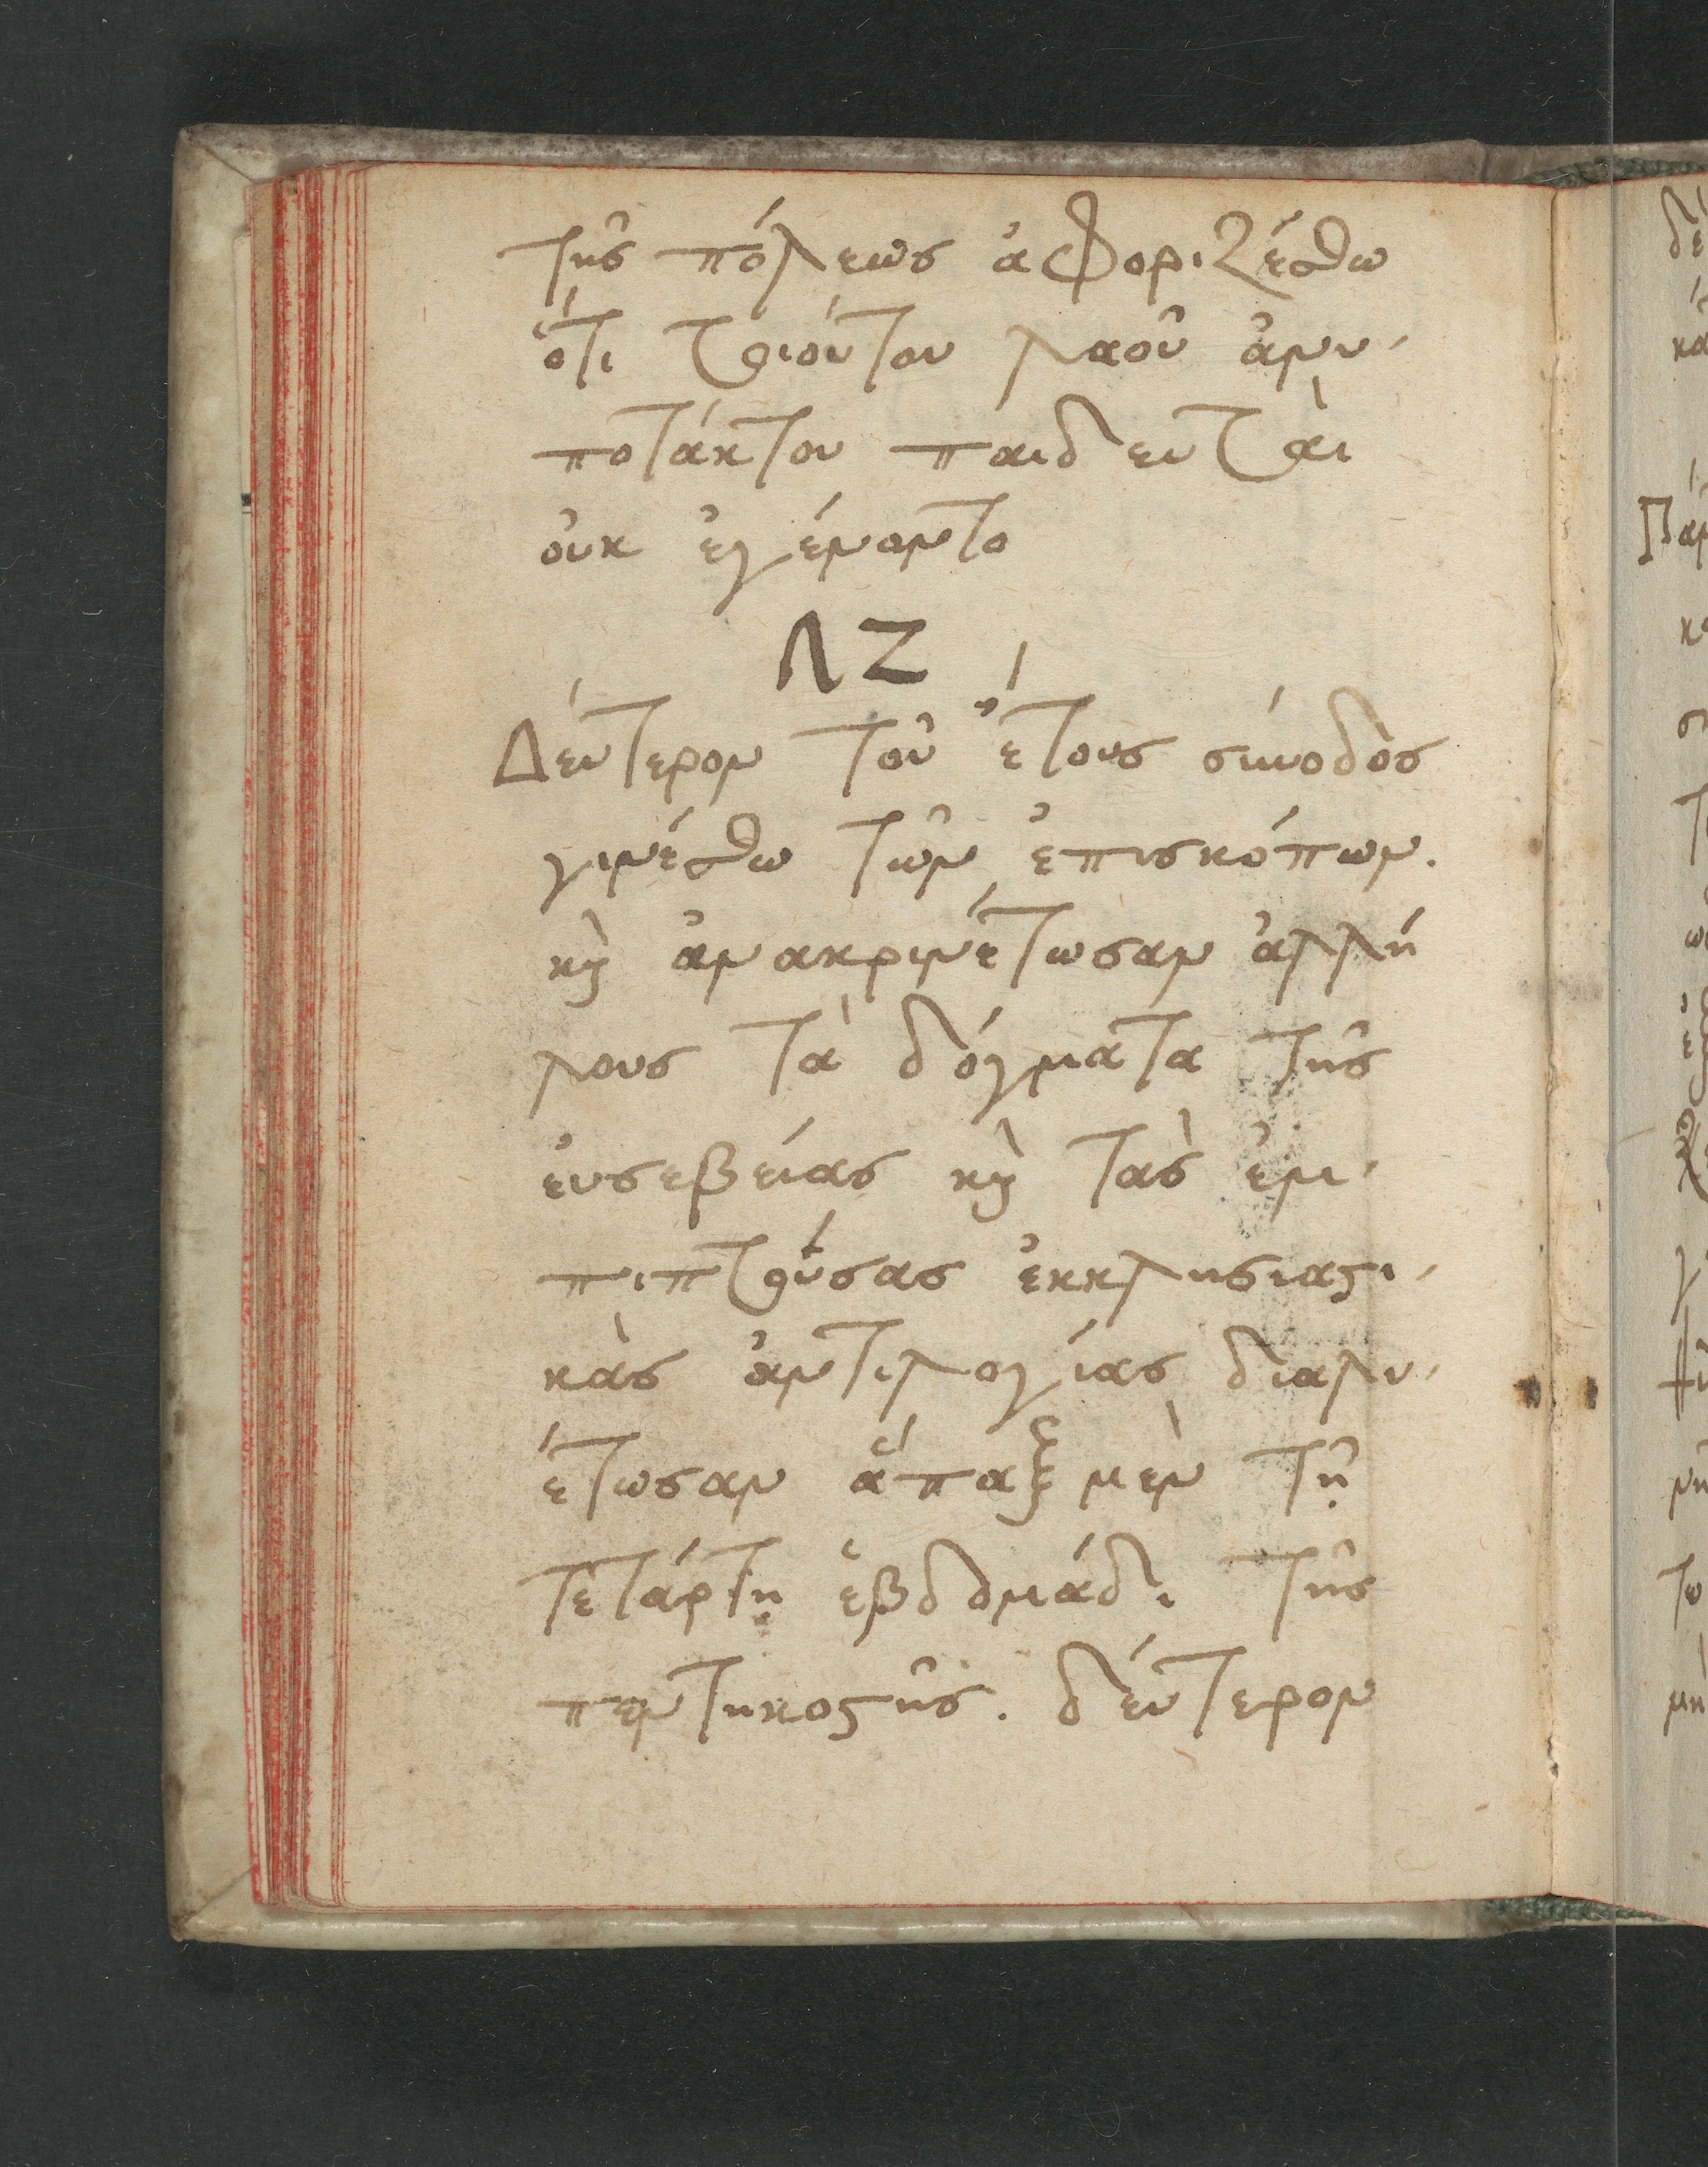 τῆς πόλεως ἀφοριζέσθω
ὅτι τοιούτου λαοῦ ἀνυ-
ποτάκτου παιδευταὶ
οὐκ ἐγένοντο
ΛΖ
Δεύτερον τοῦ ἔτους σύνοδος
γινέσθω τῶν ἐπισκόπων.
καὶ ἀνακρινέτωσαν ἀλλή
λους τὰ δόγματα τῆς
ἐυσεβείας καὶ τὰς ἐμ-
πιπτούσας ἐκκλησιαστι-
κὰς ἀντιλογίας διαλυ-
έτωσαν ἅπαξ μὲν τῇ
τετάρτῃ ἑβδομάδι τῆς
πεντηκοστῆς. δέυτερον